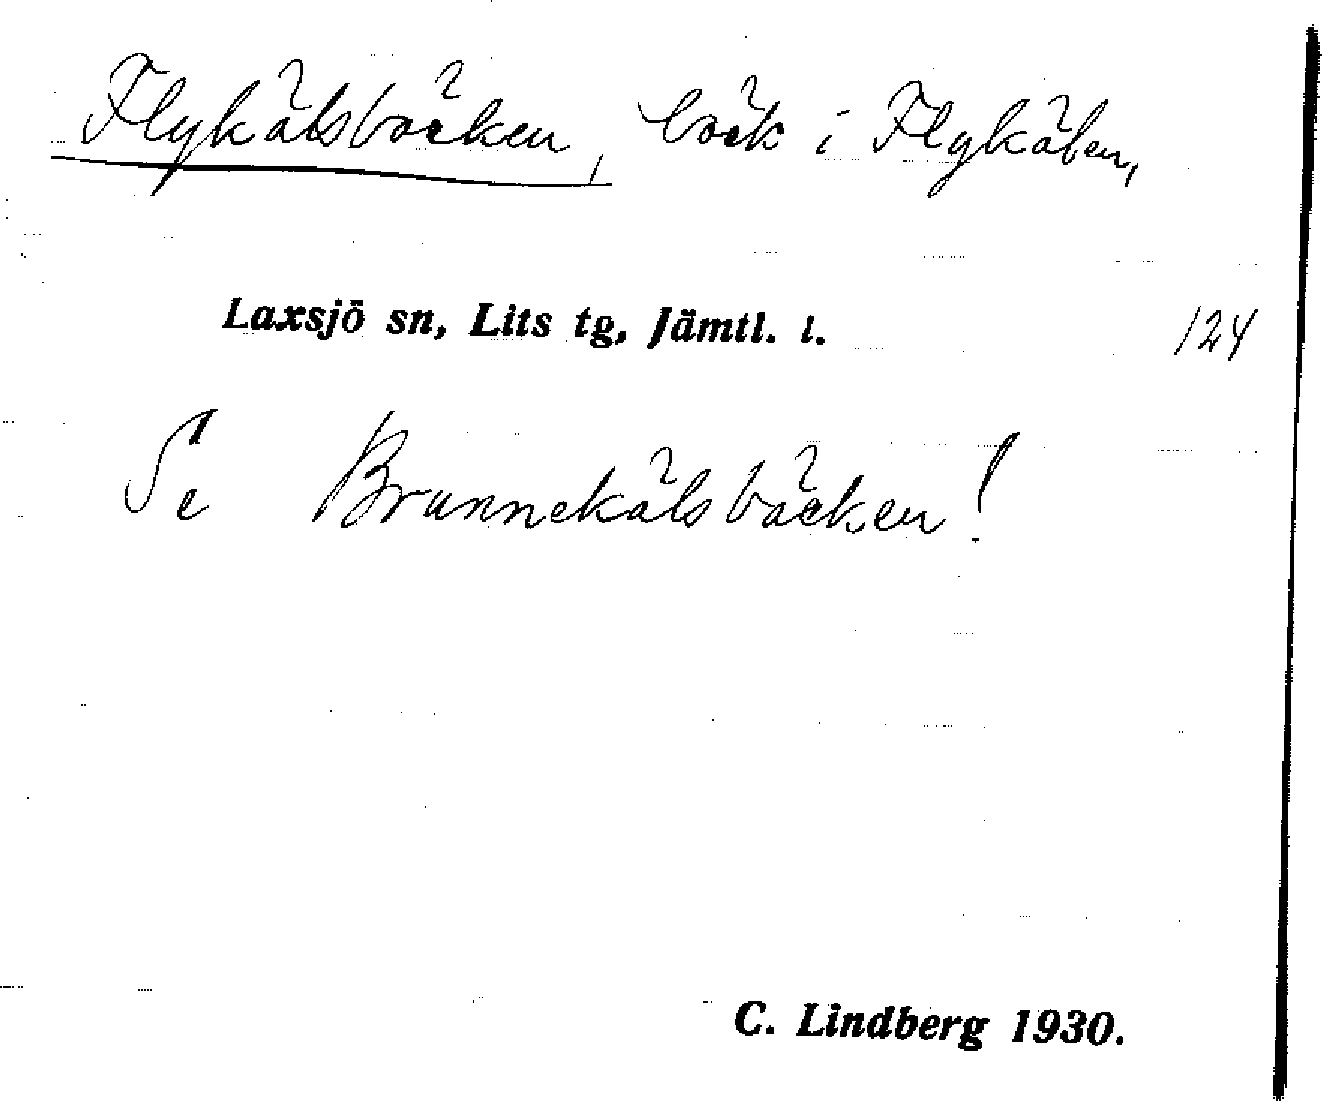 Flykälsbäcken, bäck i Flykälen,
Laxsjö sn, Lits tg, Jämtl. l. 124
Se Brannekälsbäcken!
C. Lindberg 1930.